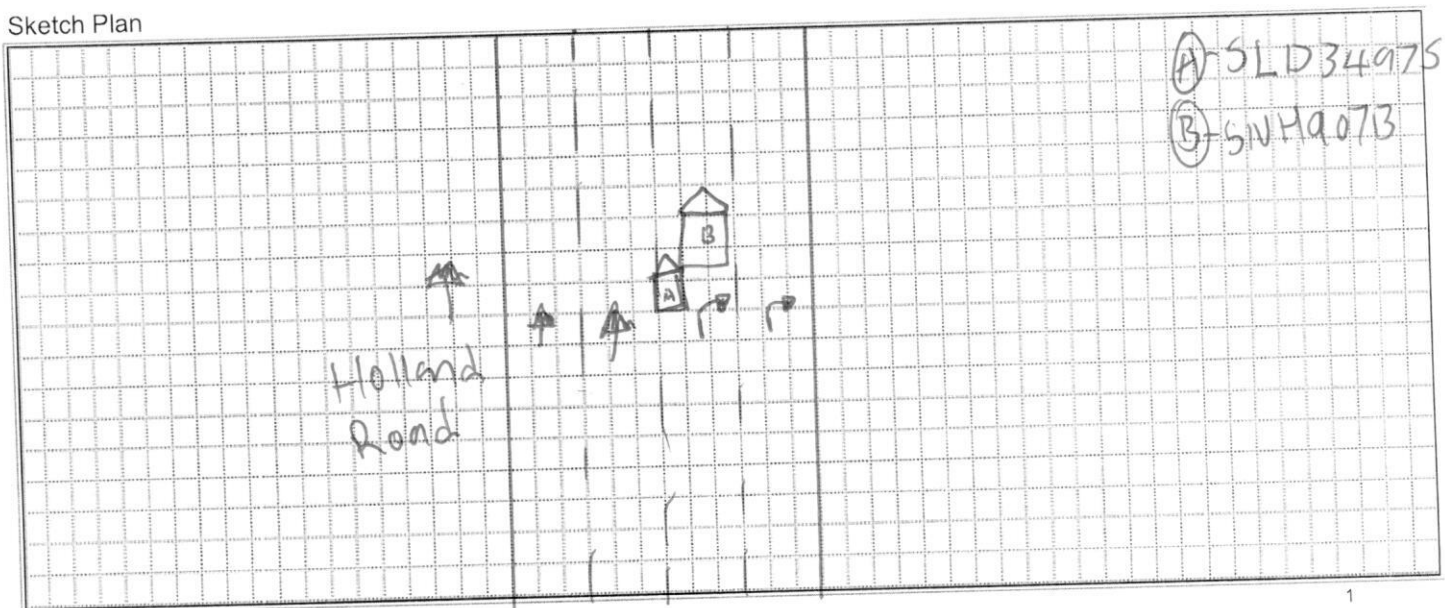 Sketch Plan
Ⓐ-SLD3497S
Ⓑ-SNH907B
B
A
Holland
Road
1